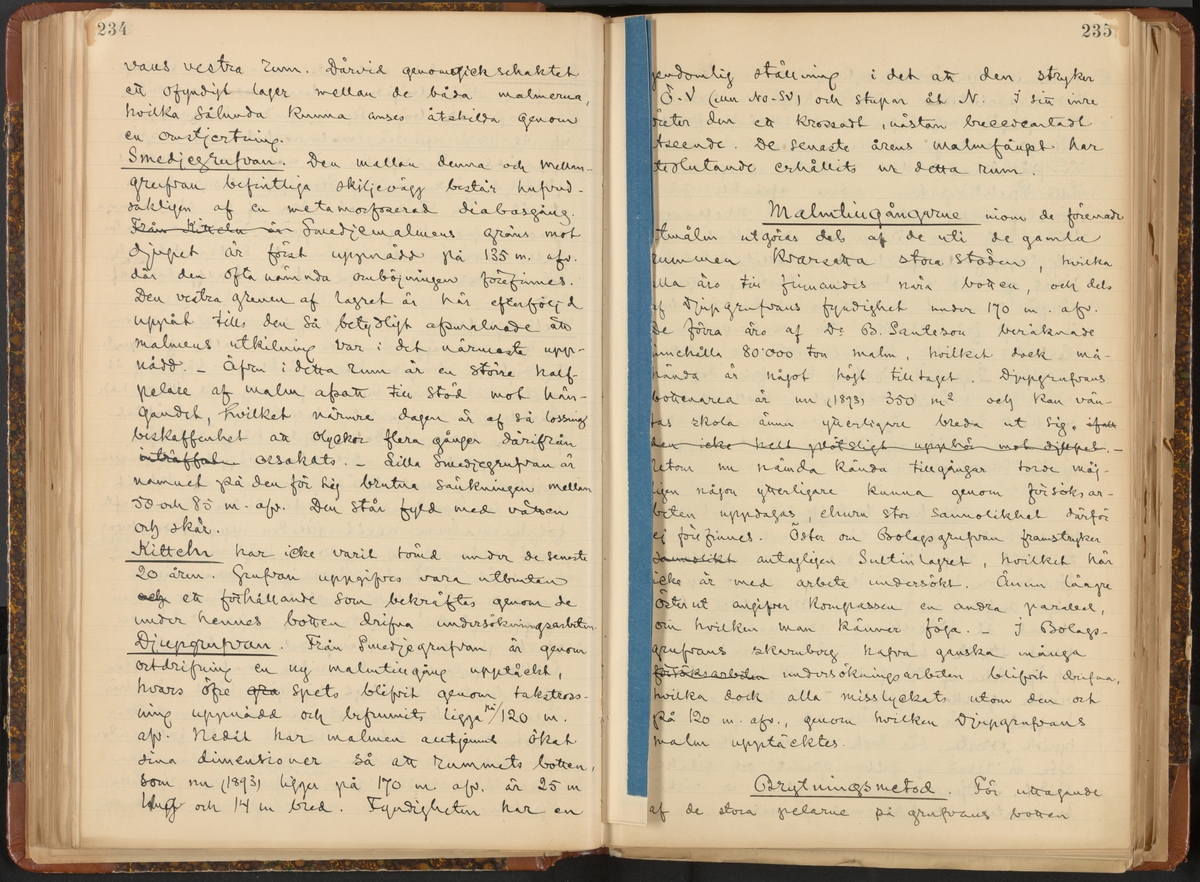 234
vans vestra rum. Därvid genomgick schaktet
ett ofyndigt lager mellan de båda malmerna,
hvilka således kunna anses åtskilda genom
en omstjertning.
Smedjegrufvan. Den mellan denna och Mellan-
grufvan befintliga skiljevägg består hufvud-
sakligen af en metamorfoserad diabasgång.
Från Kitteln är Smedjemalmens gräns mot
djupet är först uppnådd på 135 m. afv.
där den ofta nämnda ombojningen förefinnes.
Den vestra grenen af lagret är här efterföljd
uppåt tills den så betydligt afsmalnade att
malmens utkilning var i det närmaste upp-
nådd. – Äfven i detta rum är en större half-
pelare af malm afsatt till stöd mot hän-
gandet, hvilket närmre dagen är af så lossnig
beskaffenhet att olyckor flera gånger därifrån
inträffat orsakats. – Lilla Smedjegrufvan är
namnet på den för sig brutna sänkningen mellan
50 och 85 m. afv. Den står fyld med vatten
och skär.
Kitteln har icke varit tömd under de senaste
20 åren. Grufvan uppgifves vara utbruten
och ett förhållande som bekräftes genom de
under hennes botten drifna undersökningsarbeten.
Djupgrufvan. Från Smedjegrufvan är genom
ortdrifning en ny malmtingång upptäckt,
hvars öfre spets blifvit genom takstross-
ning uppnådd och befunnits ligga på 120 m.
afv. Nedåt har malmen ökat
sina dimensioner så att rummets botten,
som nu (1893) ligger på 170 m. afv. är 25 m
lång och 14 m bred. Fyndigheten har en
235
gendomlig ställning i det att den stryker
Ö.V (nn NO-SV) och stupar åt N. I sitt inre
öreter den ett krossadt, nästan brecceiartadt
tseende. De senaste årens malmfångst har
teslutande erhållits ur detta rum.
Malmtingångarne inom de förenade
tmålm utgöras dels af de uti de gamla
rummen kvarsatta stora stöden, hvilka
lla äro till finnandes nära botten, och dels
af Djupgrufvans fyndighet under 170 m. afv.
De förra äro af Dr B. Santeson beräknade
innehålla 80'000 ton malm, hvilket dock må-
hända är något högt tilltaget. Djupgrufvans
bottenarea är nu (1893) 350 m² och kan vän-
tas skola ännu ytterligare breda ut sig, ifall
den icke helt plötsligt upphör mot djupet. –
Utom nu nämda kända tillgångar torde möj-
ligen någon ytterligare kunna genom försöksar-
beten uppdagas, ehuru stor sannolikhet därför
ej förefinnes. Öster om Bolagsgrufvan framstryker
sannolikt antagligen Sultinlagret, hvilket här
icke är med arbete undersökt. Ännu längre
österut angifver kompassen en andra parallel,
om hvilken man känner föga. – I Bolags-
grufvans skarnberg hafva ganska många
försöksarbeten undersökningsarbeten blifvit drifna,
hvilka dock alla misslyckats utom den ort
på 120 m. afv., genom hvilken Djupgrufvans
malm upptäcktes.
Brytningsmetod. För uttagande
af de stora pelarne på grufvans botten